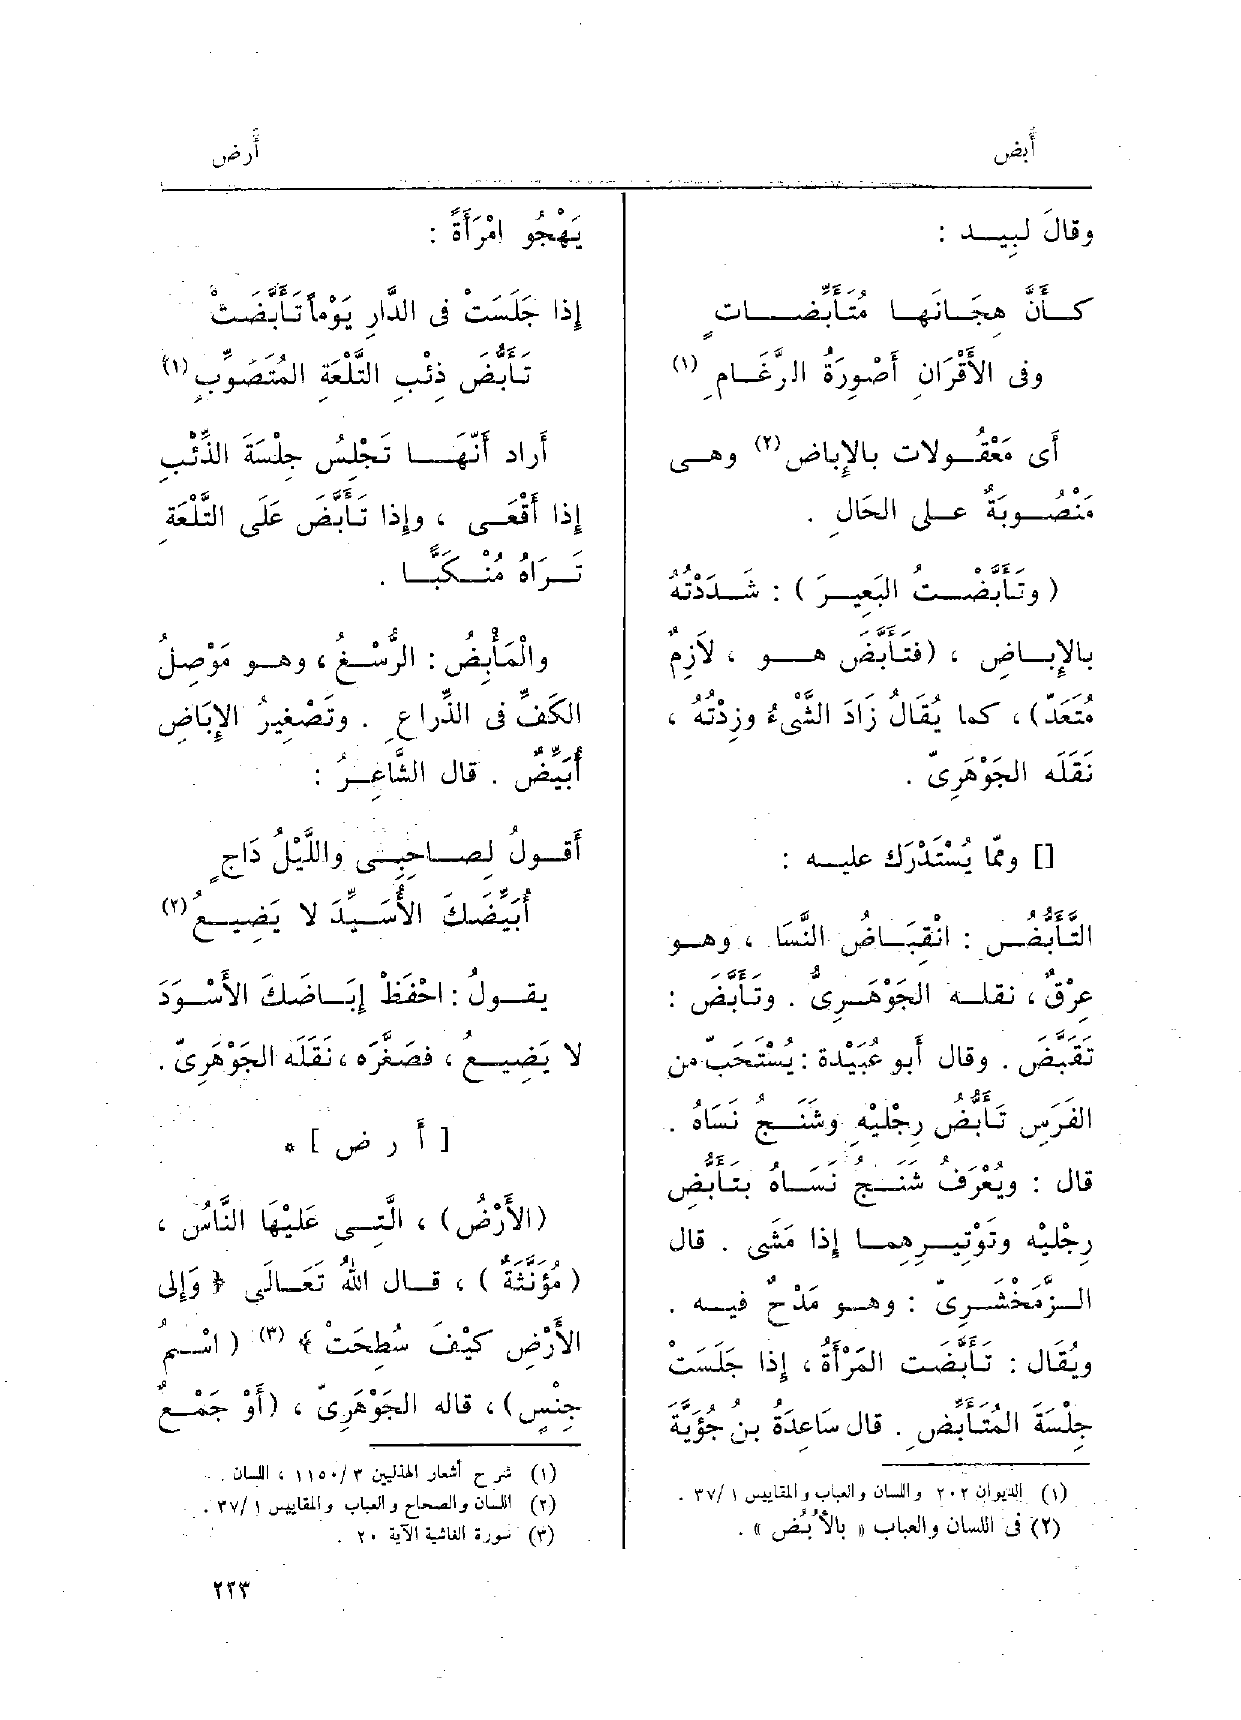 أبض
أرض
وقالَ لَبِيد :
كأَنَّ هِجَانَها مُتَأَبِّضَاتٍ
وفى الأَقْرَانِ أَصْوِرَةُ الرَّغَامِ (١)
أَى مَعْقُولات بالإِباض (٢) وهى
مَنْصُوبَةٌ على الحَالِ .
(وتَأَبَّضْتُ البَعِيرَ) : شَدَدْتُهُ
بالإِبَاضِ ، (فتَأَبَّضَ هو ، لَازِمٌ
مُتَعَدّ) ، كما يُقَالُ زَادَ الشَّىْءُ وزِدْتُهُ ،
نَقَلَه الجَوْهَرِىّ .
[] وممّا يُسْتَدْرَك عليه :
التَّأَبُّضُ : انْقِبَاضُ النَّسَا ، وهو
عِرْقٌ ، نقله الجَوْهَرِىُّ . وتَأَبَّضَ :
تَقَبَّضَ . وقال أَبو عُبَيْدَةَ : يُسْتَحَبّ من
الفَرَسِ تَأَبُّضُ رِجْلَيْهِ وشَنَجُ نَسَاهُ .
قال : ويُعْرَفُ شَنَجُ نَسَاهُ بتَأَبُّضِ
رِجْلَيْه وتَوْتِيرِهما إِذا مَشَى . قال
الزَّمَخْشَرِىّ : وهو مَدْحٌ فيه .
ويُقَال : تَأَبَّضَت المَرْأَةُ ، إِذا جَلَسَتْ
جِلْسَةَ المُتَأَبِّضِ . قال سَاعِدَةُ بن جُؤَيَّةَ
(١) الديوان ٢٠٢ واللسان والعباب والمقاييس ٣٧/١ .
(٢) فى اللسان والعباب « بالأُبُض » .
يَهْجُو امْرَأَةً :
إِذا جَلَسَتْ فى الدَّارِ يَوْماً تَأَبَّضَتْ
تَأَبُّضَ ذِئْبِ التَّلْعَةِ المُتَصَوِّبِ (١)
أَراد أَنَّهَا تَجْلِسُ جِلْسَةَ الذِّئْبِ
إِذا أَقْعَى ، وإِذا تَأَبَّضَ عَلَى التَّلْعَةِ
تَرَاهُ مُنْكَبًّا .
والْمَأْبِضُ : الرُّسْغُ ، وهو مَوْصِلُ
الكَفِّ فى الذِّراعِ . وتَصْغِيرُ الإِبَاضِ
أُبَيِّضٌ . قال الشَّاعِرُ :
أَقولُ لِصاحِبِى واللَّيْلُ دَاجٍ
أُبَيِّضَكَ الأُسَيِّدَ لا يَضِيعُ (٢)
يقولُ : احْفَظْ إِبَاضَكَ الأَسْوَدَ
لا يَضِيعُ ، فصَغَّرَه ، نَقَلَه الجَوْهَرِىّ .
[ أ ر ض ] *
(الأَرْضُ) ، الَّتِى عَلَيْهَا النَّاسُ ،
(مُؤَنَّثَةٌ) ، قال اللهُ تَعَالَى ﴿ وَإِلى
الأَرْضِ كَيْفَ سُطِحَتْ ﴾ (٣) (اسْمُ
جِنْسٍ) ، قاله الجَوْهَرِىّ ، (أَوْ جَمْعٌ
(١) شرح أشعار الهذليين ١١٥٠/٣ ، اللسان .
(٢) اللسان والصحاح والعباب والمقاييس ٣٧/١ .
(٣) سورة الغاشية الآية ٢٠ .
٢٢٣